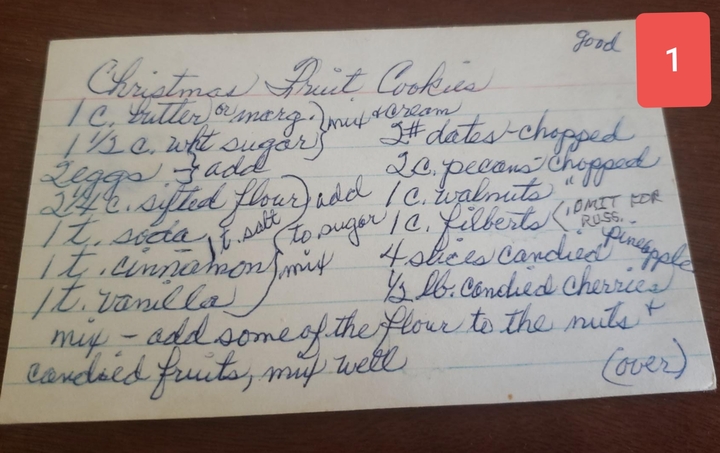 good
1
Christmas Fruit Cookies
1 c. butter or marg. } mix & cream
1 1/2 c. wht sugar
2 eggs } add
2 1/4 c. sifted flour } add
1 t. soda 1 t. salt to sugar
1 t. cinnamon mix
1 t. vanilla
2# dates - chopped
2 c. pecans - chopped
1 c. walnuts "
1 c. filberts (OMIT FOR RUSS.
4 slices candied pineapple
1/2 lb. candied cherries
mix - add some of the flour to the nuts +
candied fruits, mix well
(over)